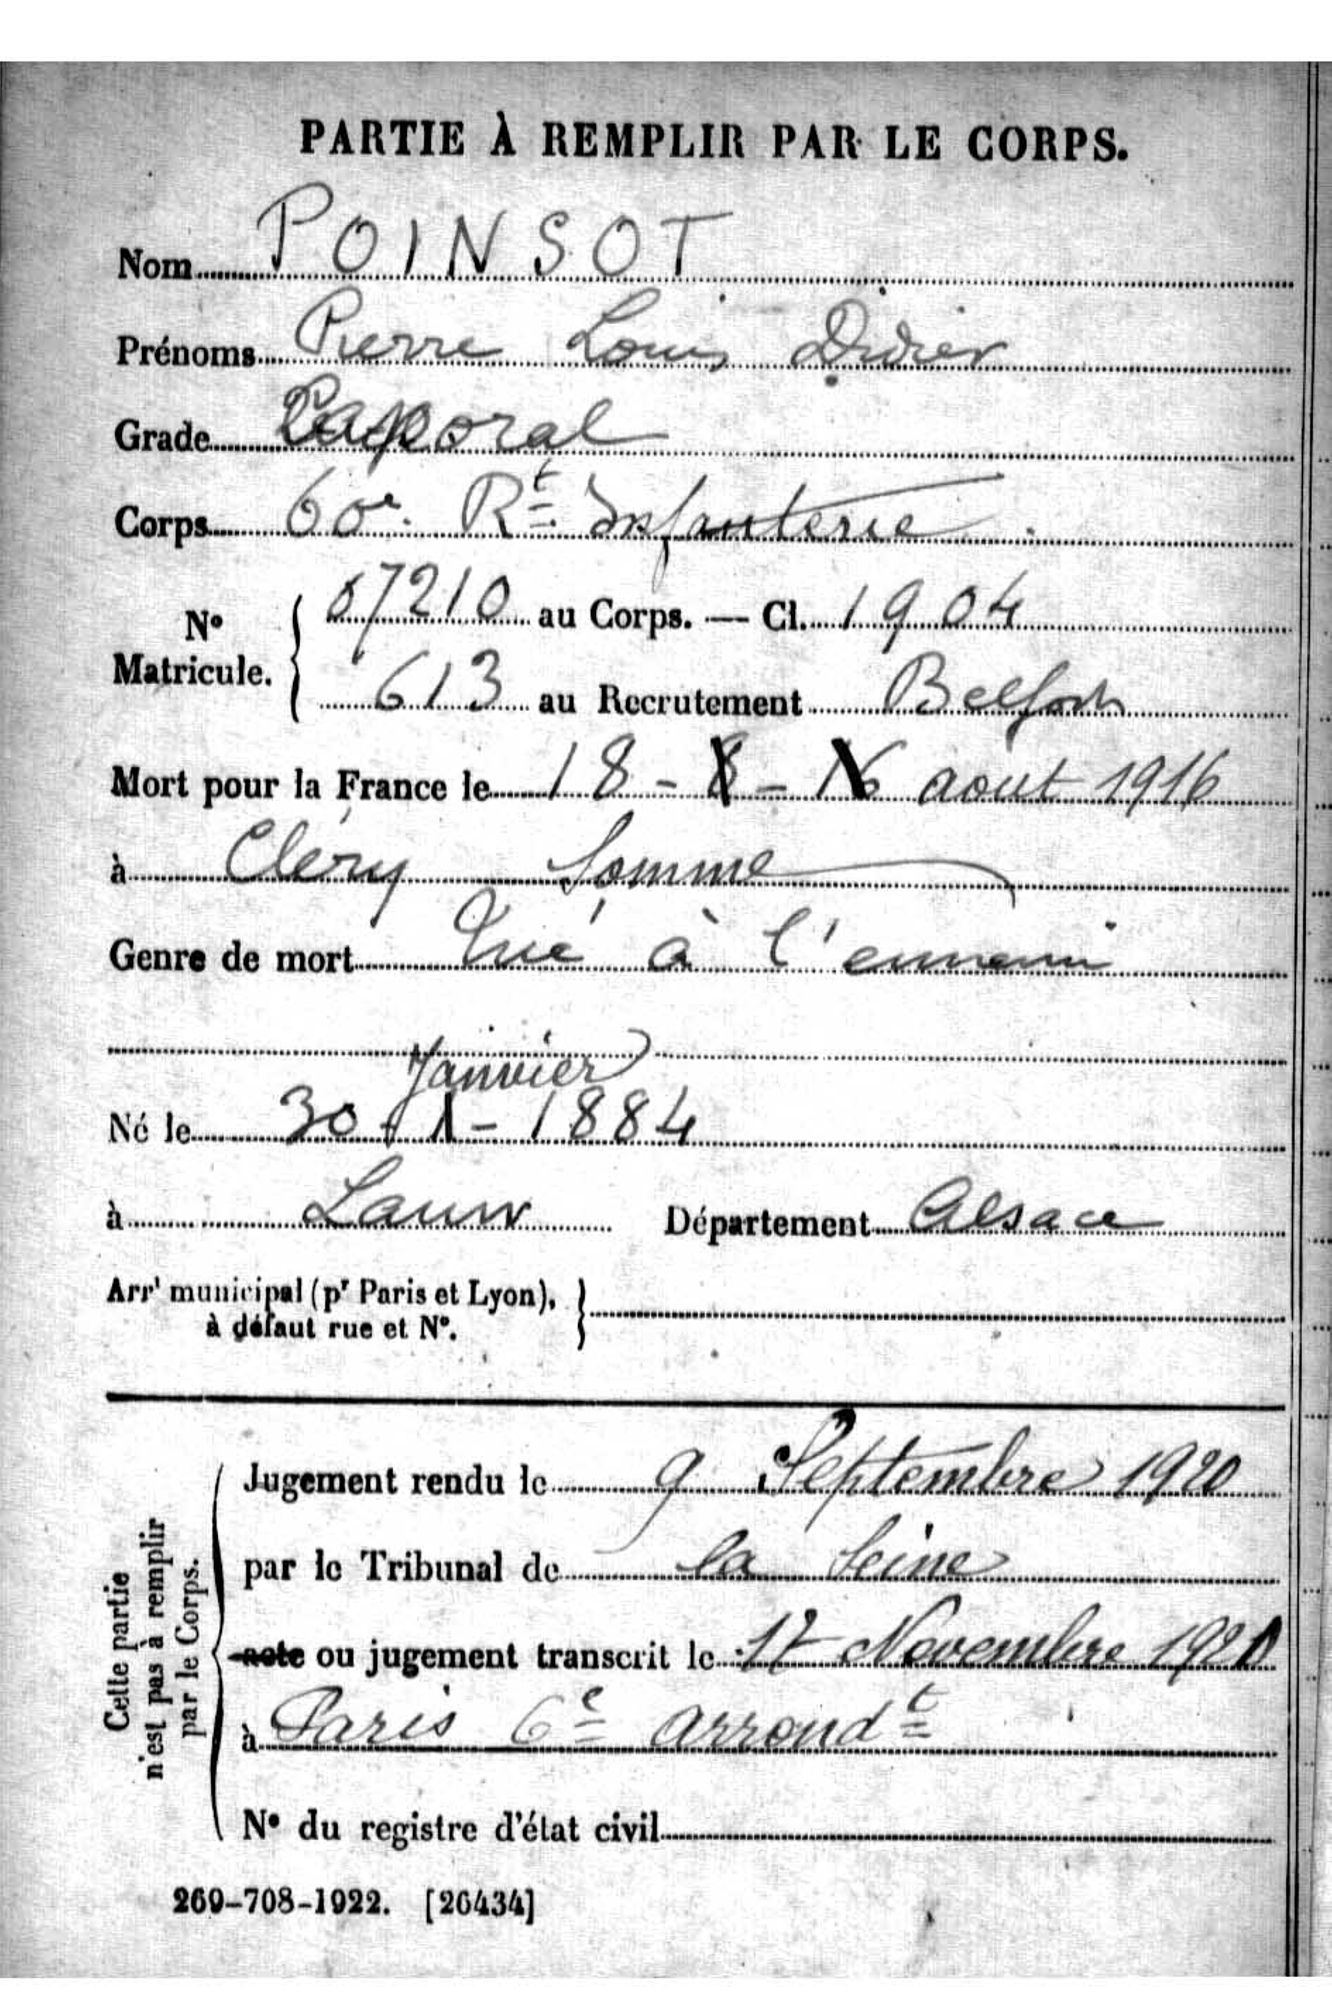 PARTIE À REMPLIR PAR LE CORPS.
Nom POINSOT
Prénoms Pierre Louis Didier
Grade Caporal
Corps 60e Rt Infanterie
No Matricule. { 07210 au Corps. — Cl. 1904
613 au Recrutement Belfort
Mort pour la France le 18 - 8 - 16 aout 1916
à Cléry Somme
Genre de mort Tué à l'ennemi
Janvier
Né le 30 - 1 - 1884
à Lauw Département Alsace
Arrt municipal (pr Paris et Lyon), à défaut rue et No. }
Cette partie n'est pas à remplir par le Corps.
Jugement rendu le 9 Septembre 1920
par le Tribunal de la Seine
acte ou jugement transcrit le 17 Novembre 1920
à Paris 6e arrondt
No du registre d'état civil
269-708-1922. [26434]